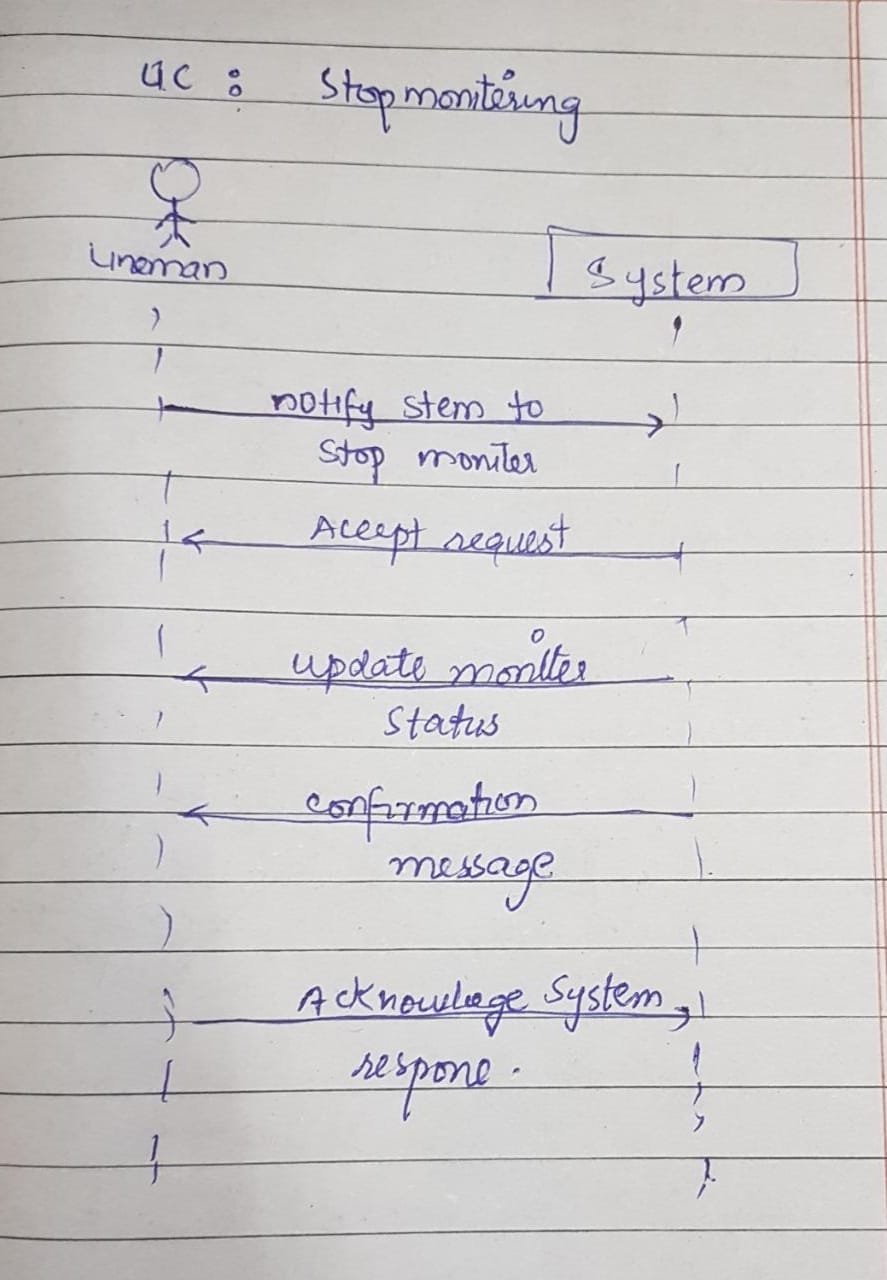 UC : Stop monitering
Lineman
System
notify stem to
stop moniter
Accept request
update moniter
status
confirmation
message
Acknowlege System
respone.